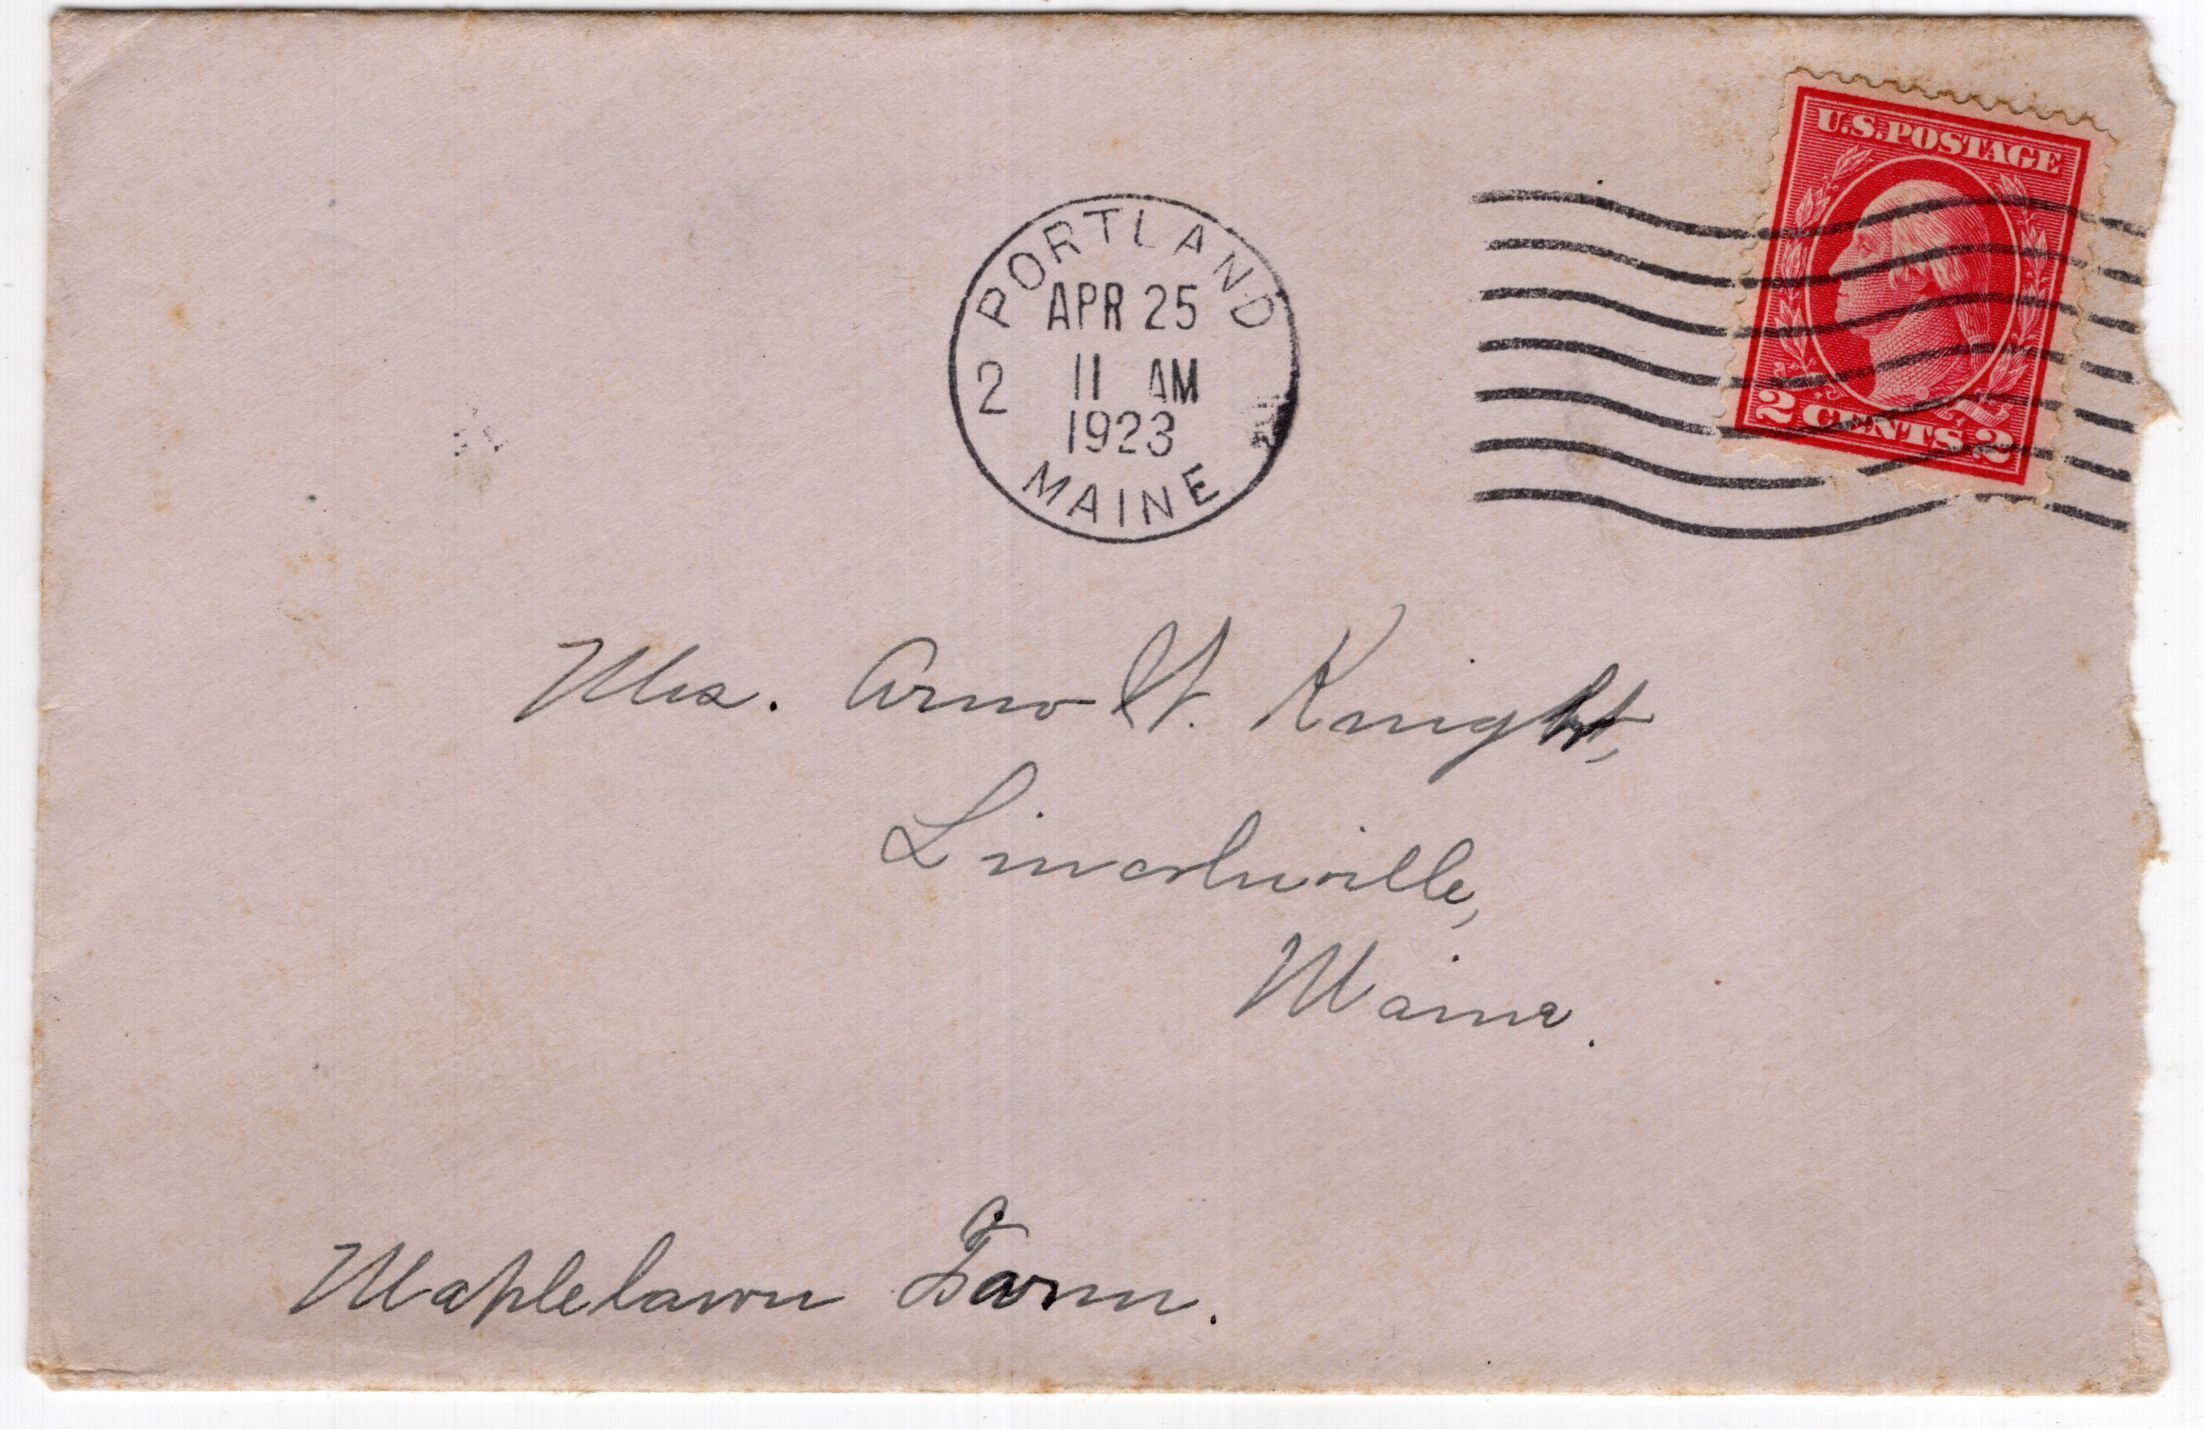 U.S. POSTAGE
2 CENTS 2
PORTLAND
APR 25
2 11 AM
1923
MAINE
Mrs. Arno W. Knight,
Lincolnville,
Maine.
Maplelawn Farm.